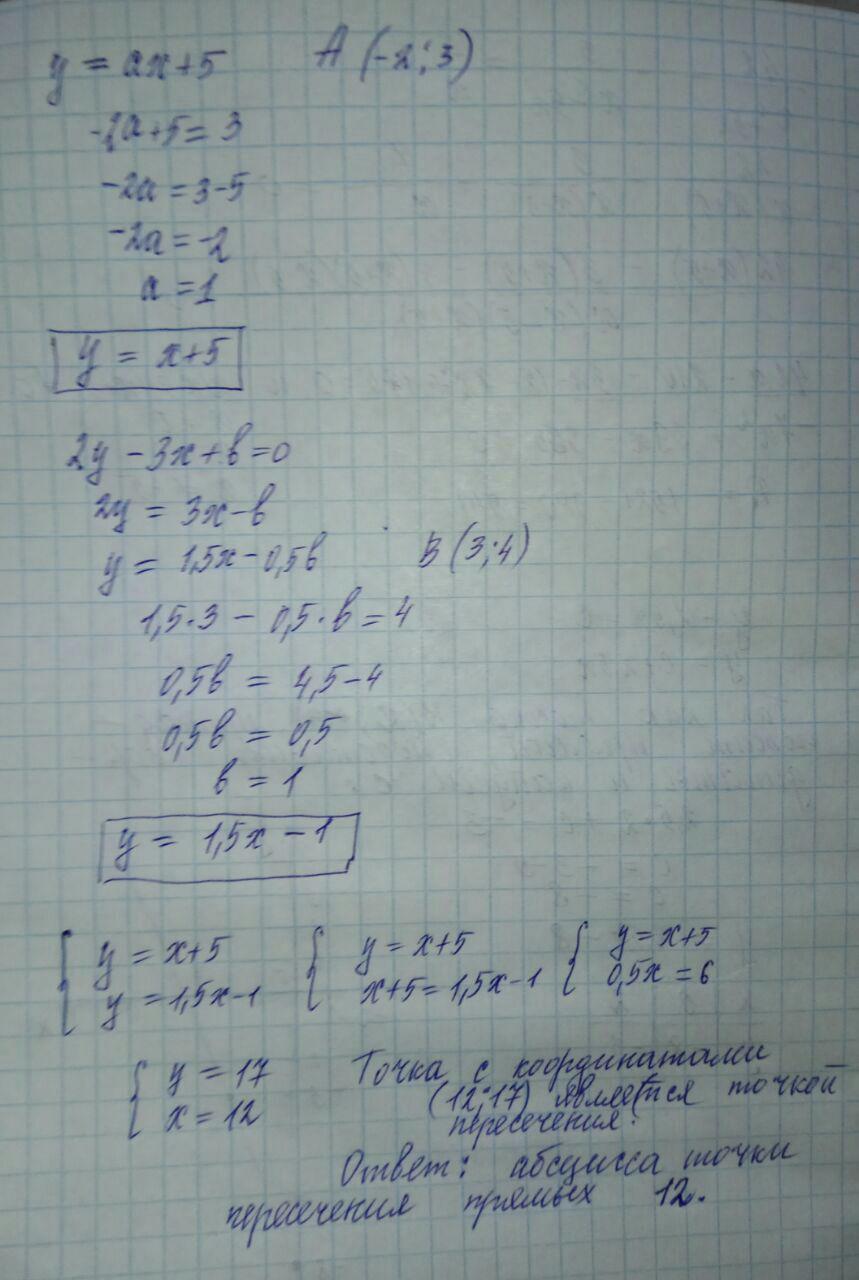 y = ax+5 A (-2;3)
-2a+5=3
-2a=3-5
-2a=-2
a=1
y = x+5
2y-3x+b=0
2y = 3x-b
y = 1,5x-0,5b B(3;4)
1,5·3 - 0,5·b=4
0,5b = 4,5-4
0,5b = 0,5
b = 1
y = 1,5x-1
{ y = x+5 { y = x+5 { y = x+5
y = 1,5x-1 x+5=1,5x-1 0,5x=6
{ y = 17 Точка с координатами
x = 12 (12;17) является точкой
пересечения.
Ответ: абсцисса точки
пересечения прямых 12.